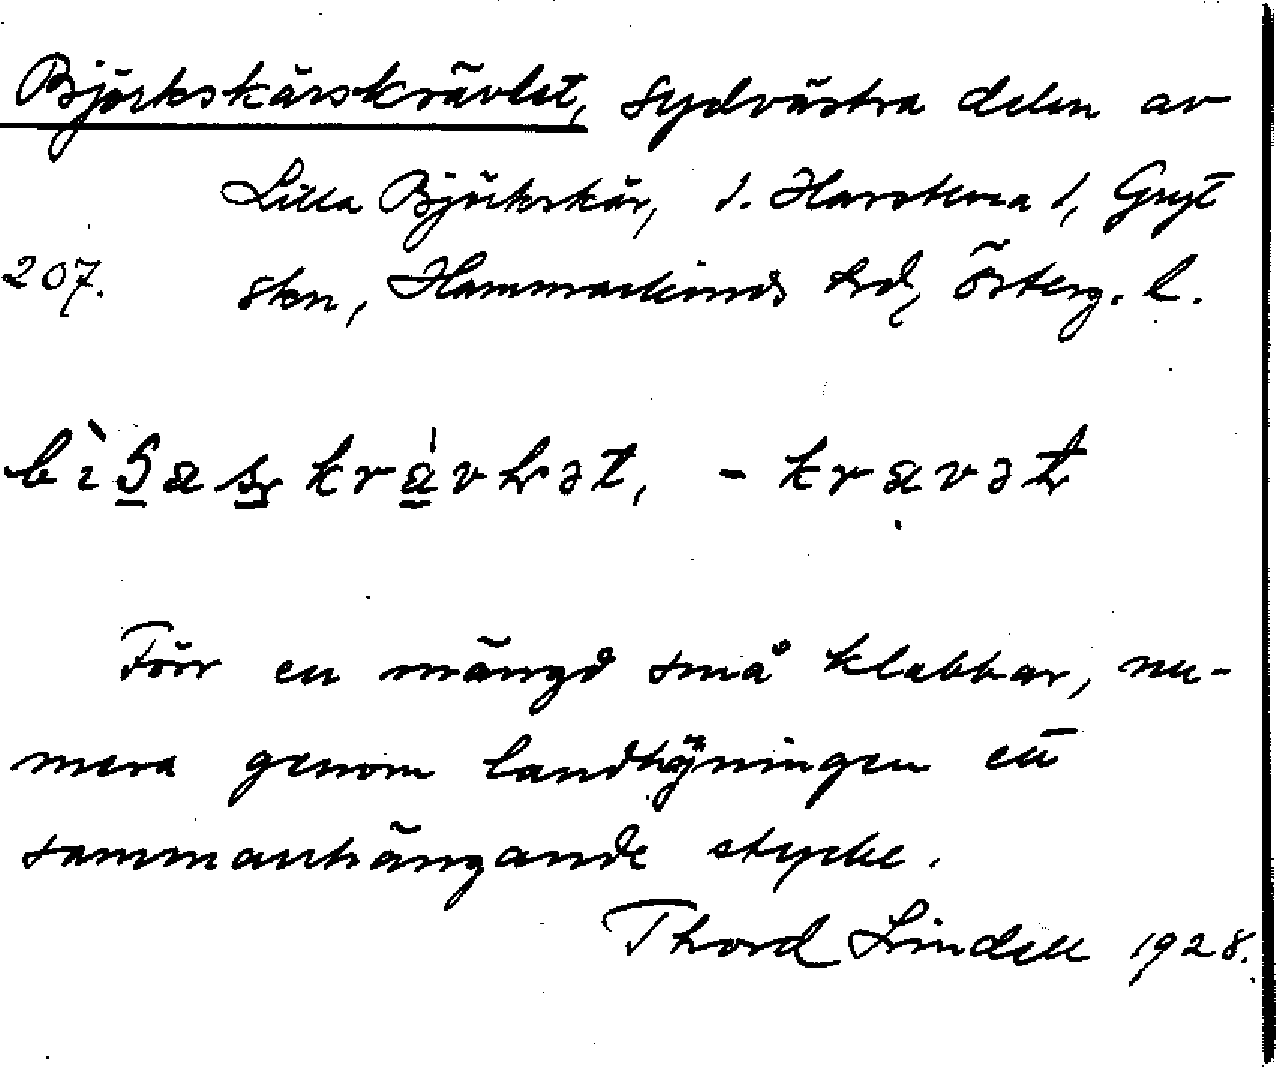 Björkskärskrävlet, sydvästra delen av
Lilla Björkskär, 1. Harstena 1, Gryt
207. skn, Hammarkinds hd, Österg. l.
Förr en mängd små klabbar, nu-
mera genom landhöjningen ett
sammanhängande stycke.
Thord Lindell 1928.